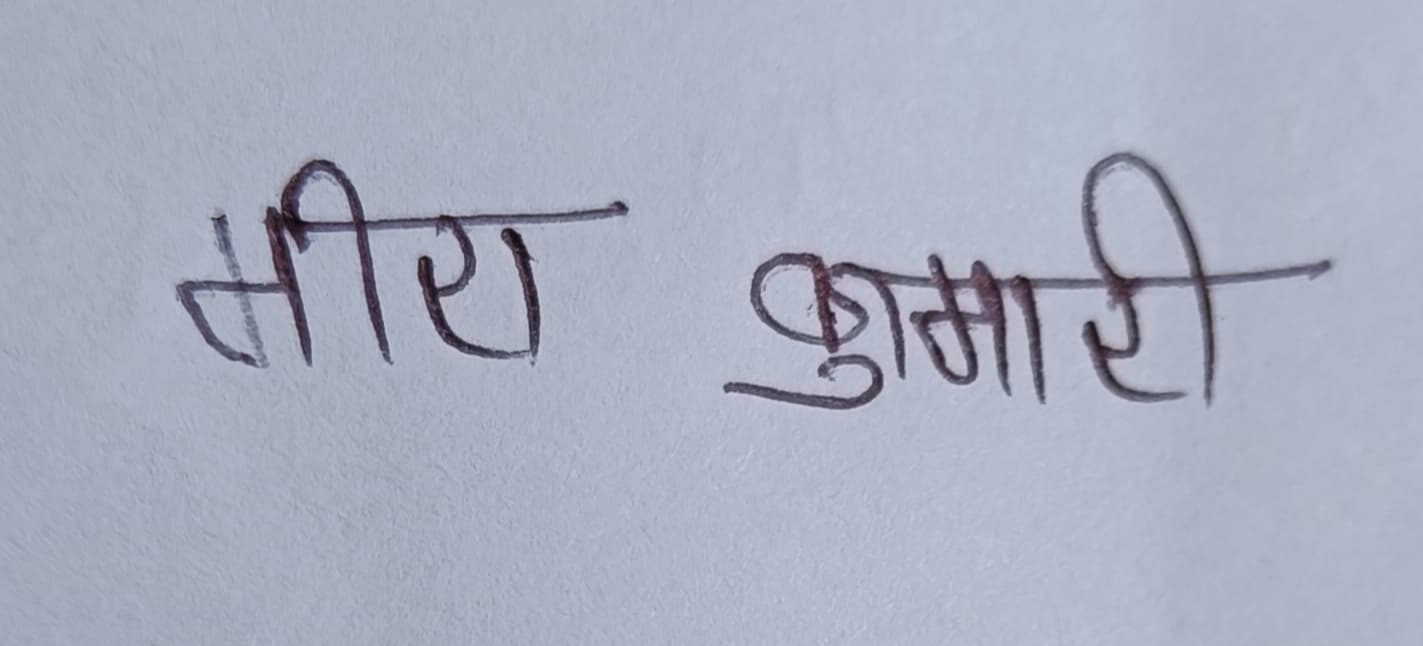 मीरा कुमारी